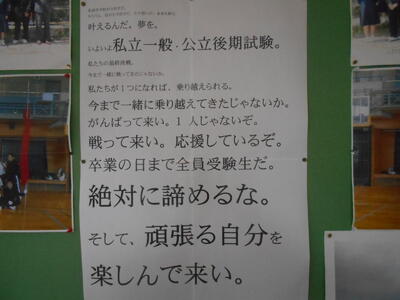 叶えるんだ。夢を。
いよいよ私立一般・公立後期試験。
私たちの最終挑戦。
今まで一緒に戦ってきたじゃないか。
私たちが1つになれば、乗り越えられる。
今まで一緒に乗り越えてきたじゃないか。
がんばって来い。1人じゃないぞ。
戦って来い。応援しているぞ。
卒業の日まで全員受験生だ。
絶対に諦めるな。
そして、頑張る自分を
楽しんで来い。